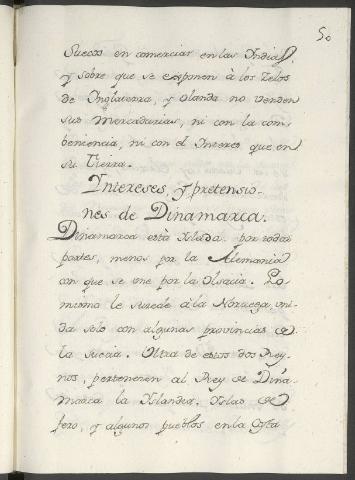 50
Suecos en comerciar en las Indias,
y sobre que se exponen à los zelos
de Inglaterra, y olanda no venden
sus mercadurias, ni con la com-
beniencia, ni con el Interes que en
su tierra.
Yntereses, y pretensio-
nes de Dinamarca.
Dinamarca està Islada por todas
partes, menos por la Alemania
con que se une por la Olsacia. Lo
mismo le sucede â la Noruega, uni-
da solo con algunas provincias de
la Suecia. Ultra de estos dos Rey-
nos, pertenecen al Rey de Dina-
marca la Islandia, Islas de
fero, y algunos pueblos en la Costa